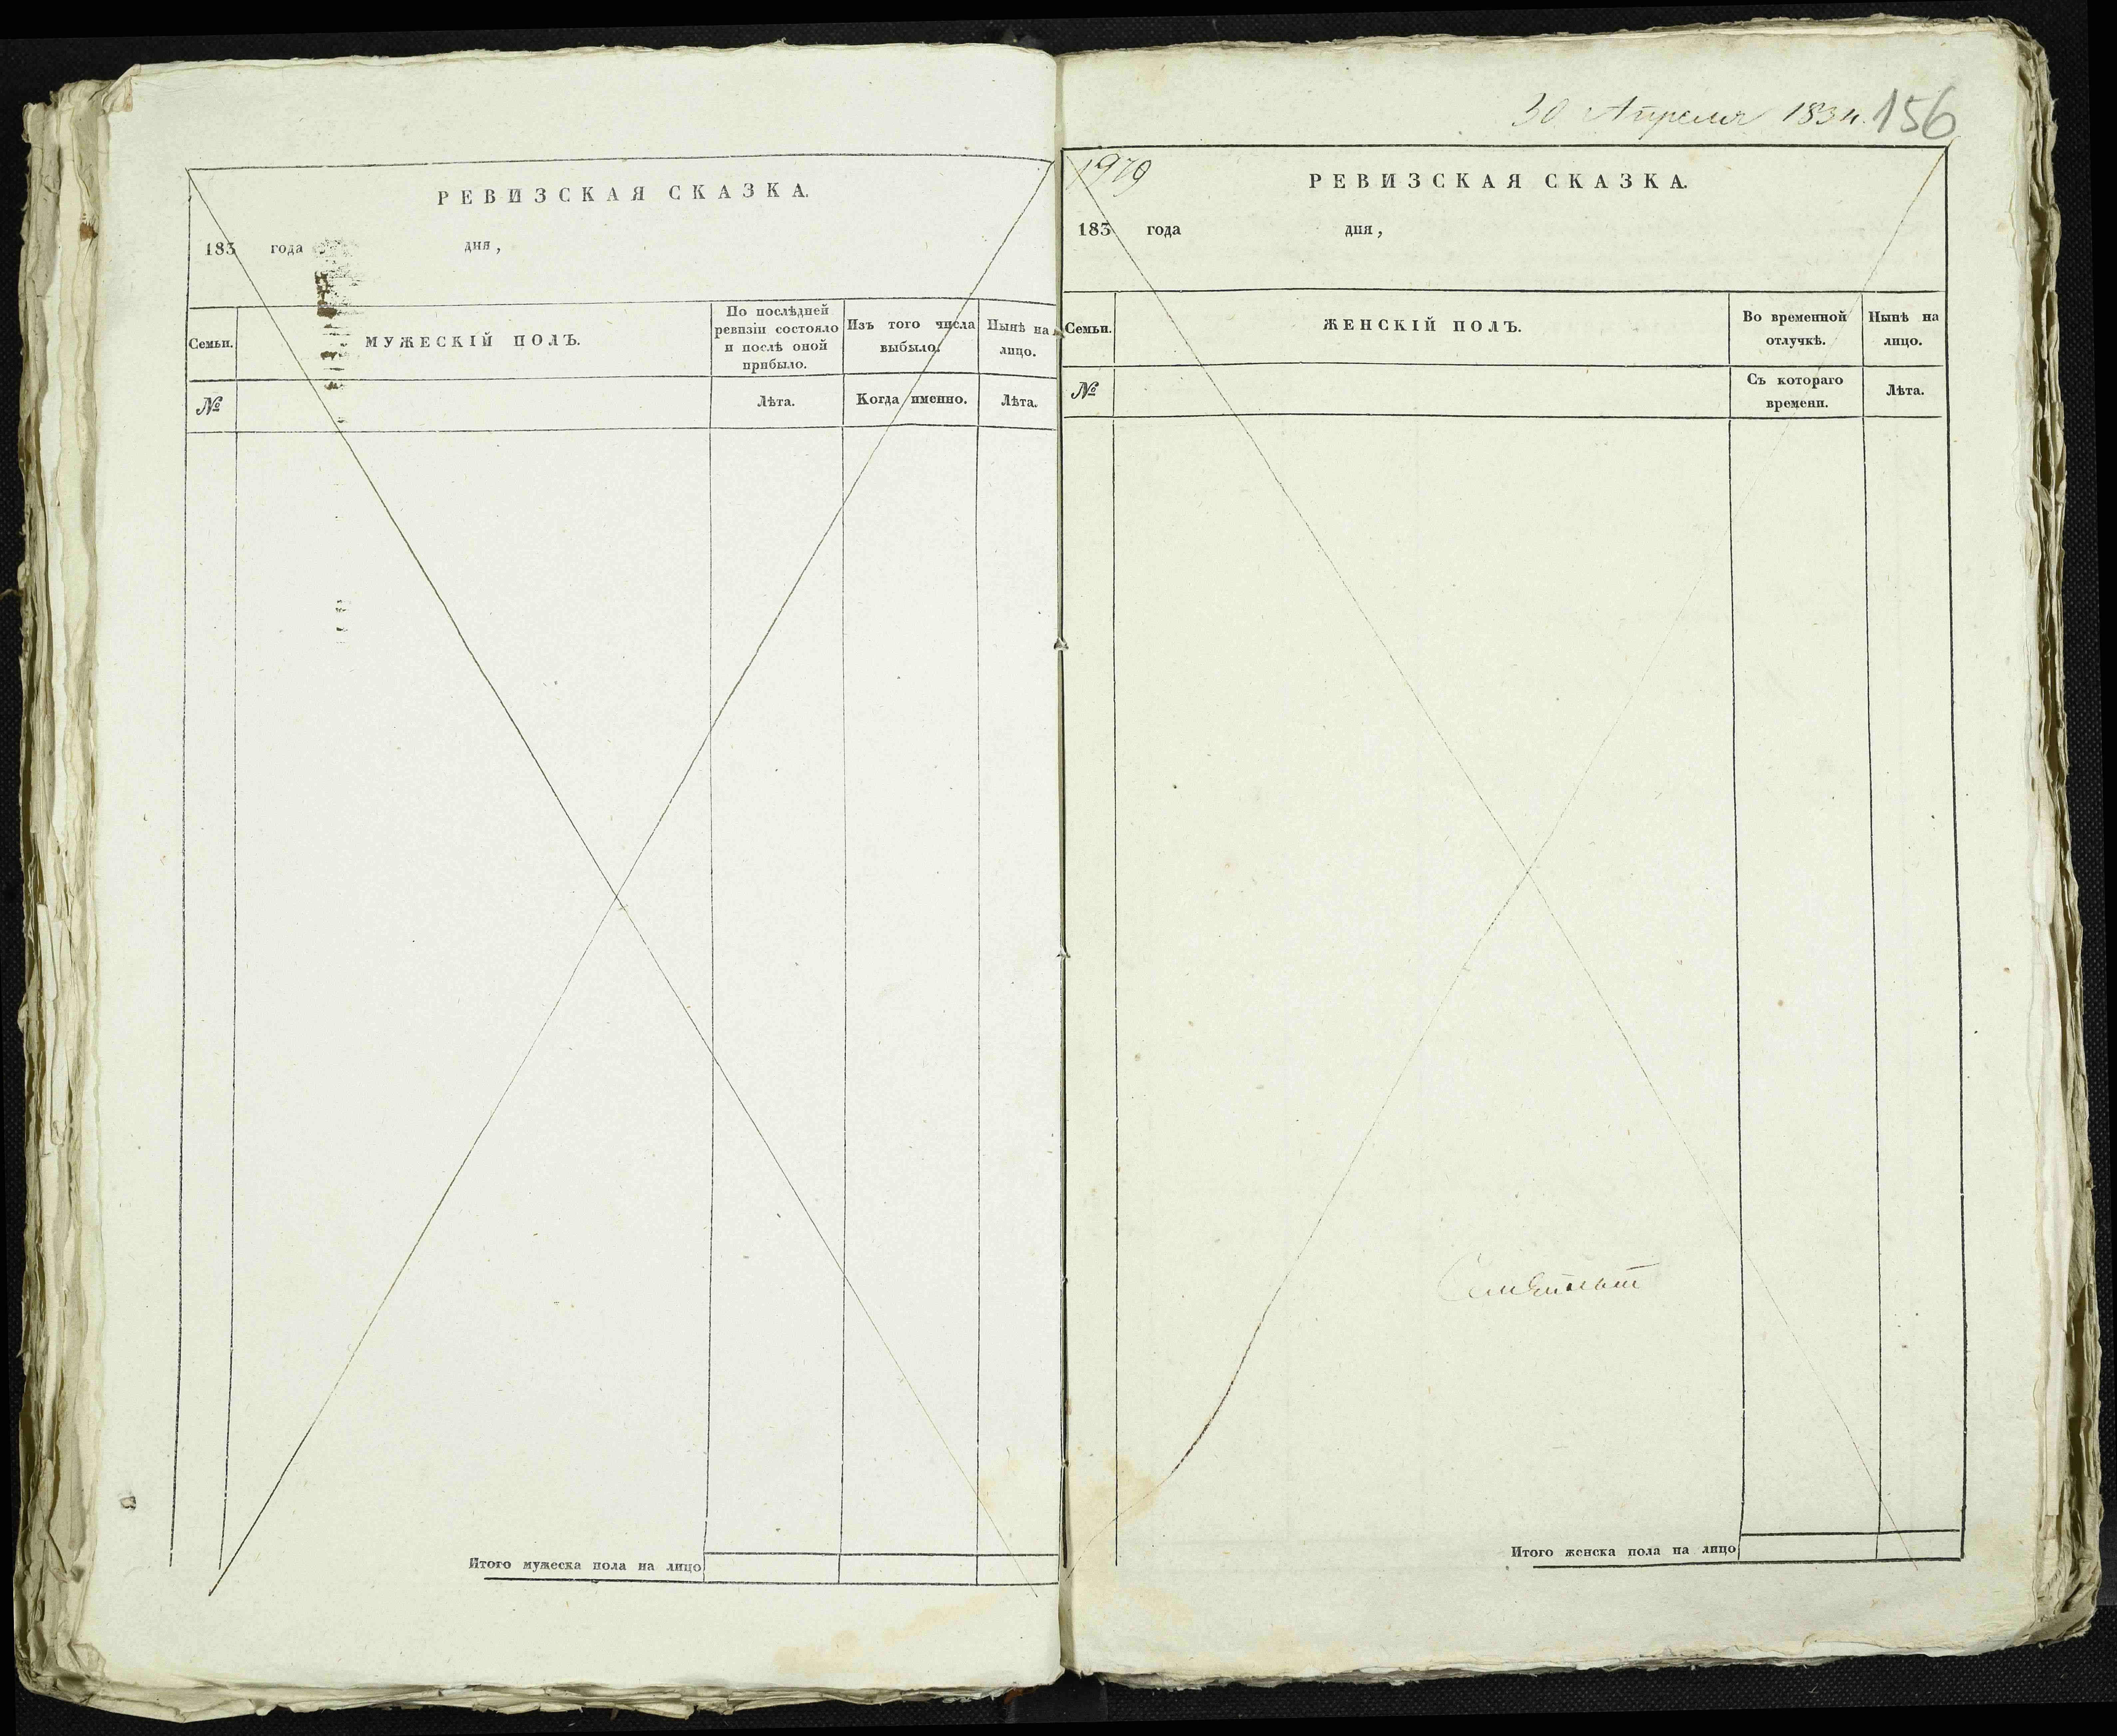 РЕВИЗСКАЯ СКАЗКА.
183 года дня,
Семьи.
МУЖЕСКІЙ ПОЛЪ.
По послѣдней
ревизіи состояло
и послѣ оной
прибыло.
Изъ того числа
выбыло.
Нынѣ на
лицо.
№
Лѣта.
Когда именно.
Лѣта.
Итого мужеска пола на лицо
30 Апреля 1834. 156
1979
РЕВИЗСКАЯ СКАЗКА.
183 года дня,
Семьи.
ЖЕНСКІЙ ПОЛЪ.
Во временной
отлучкѣ.
Нынѣ на
лицо.
№
Съ котораго
времени.
Лѣта.
Итого женска пола на лицо